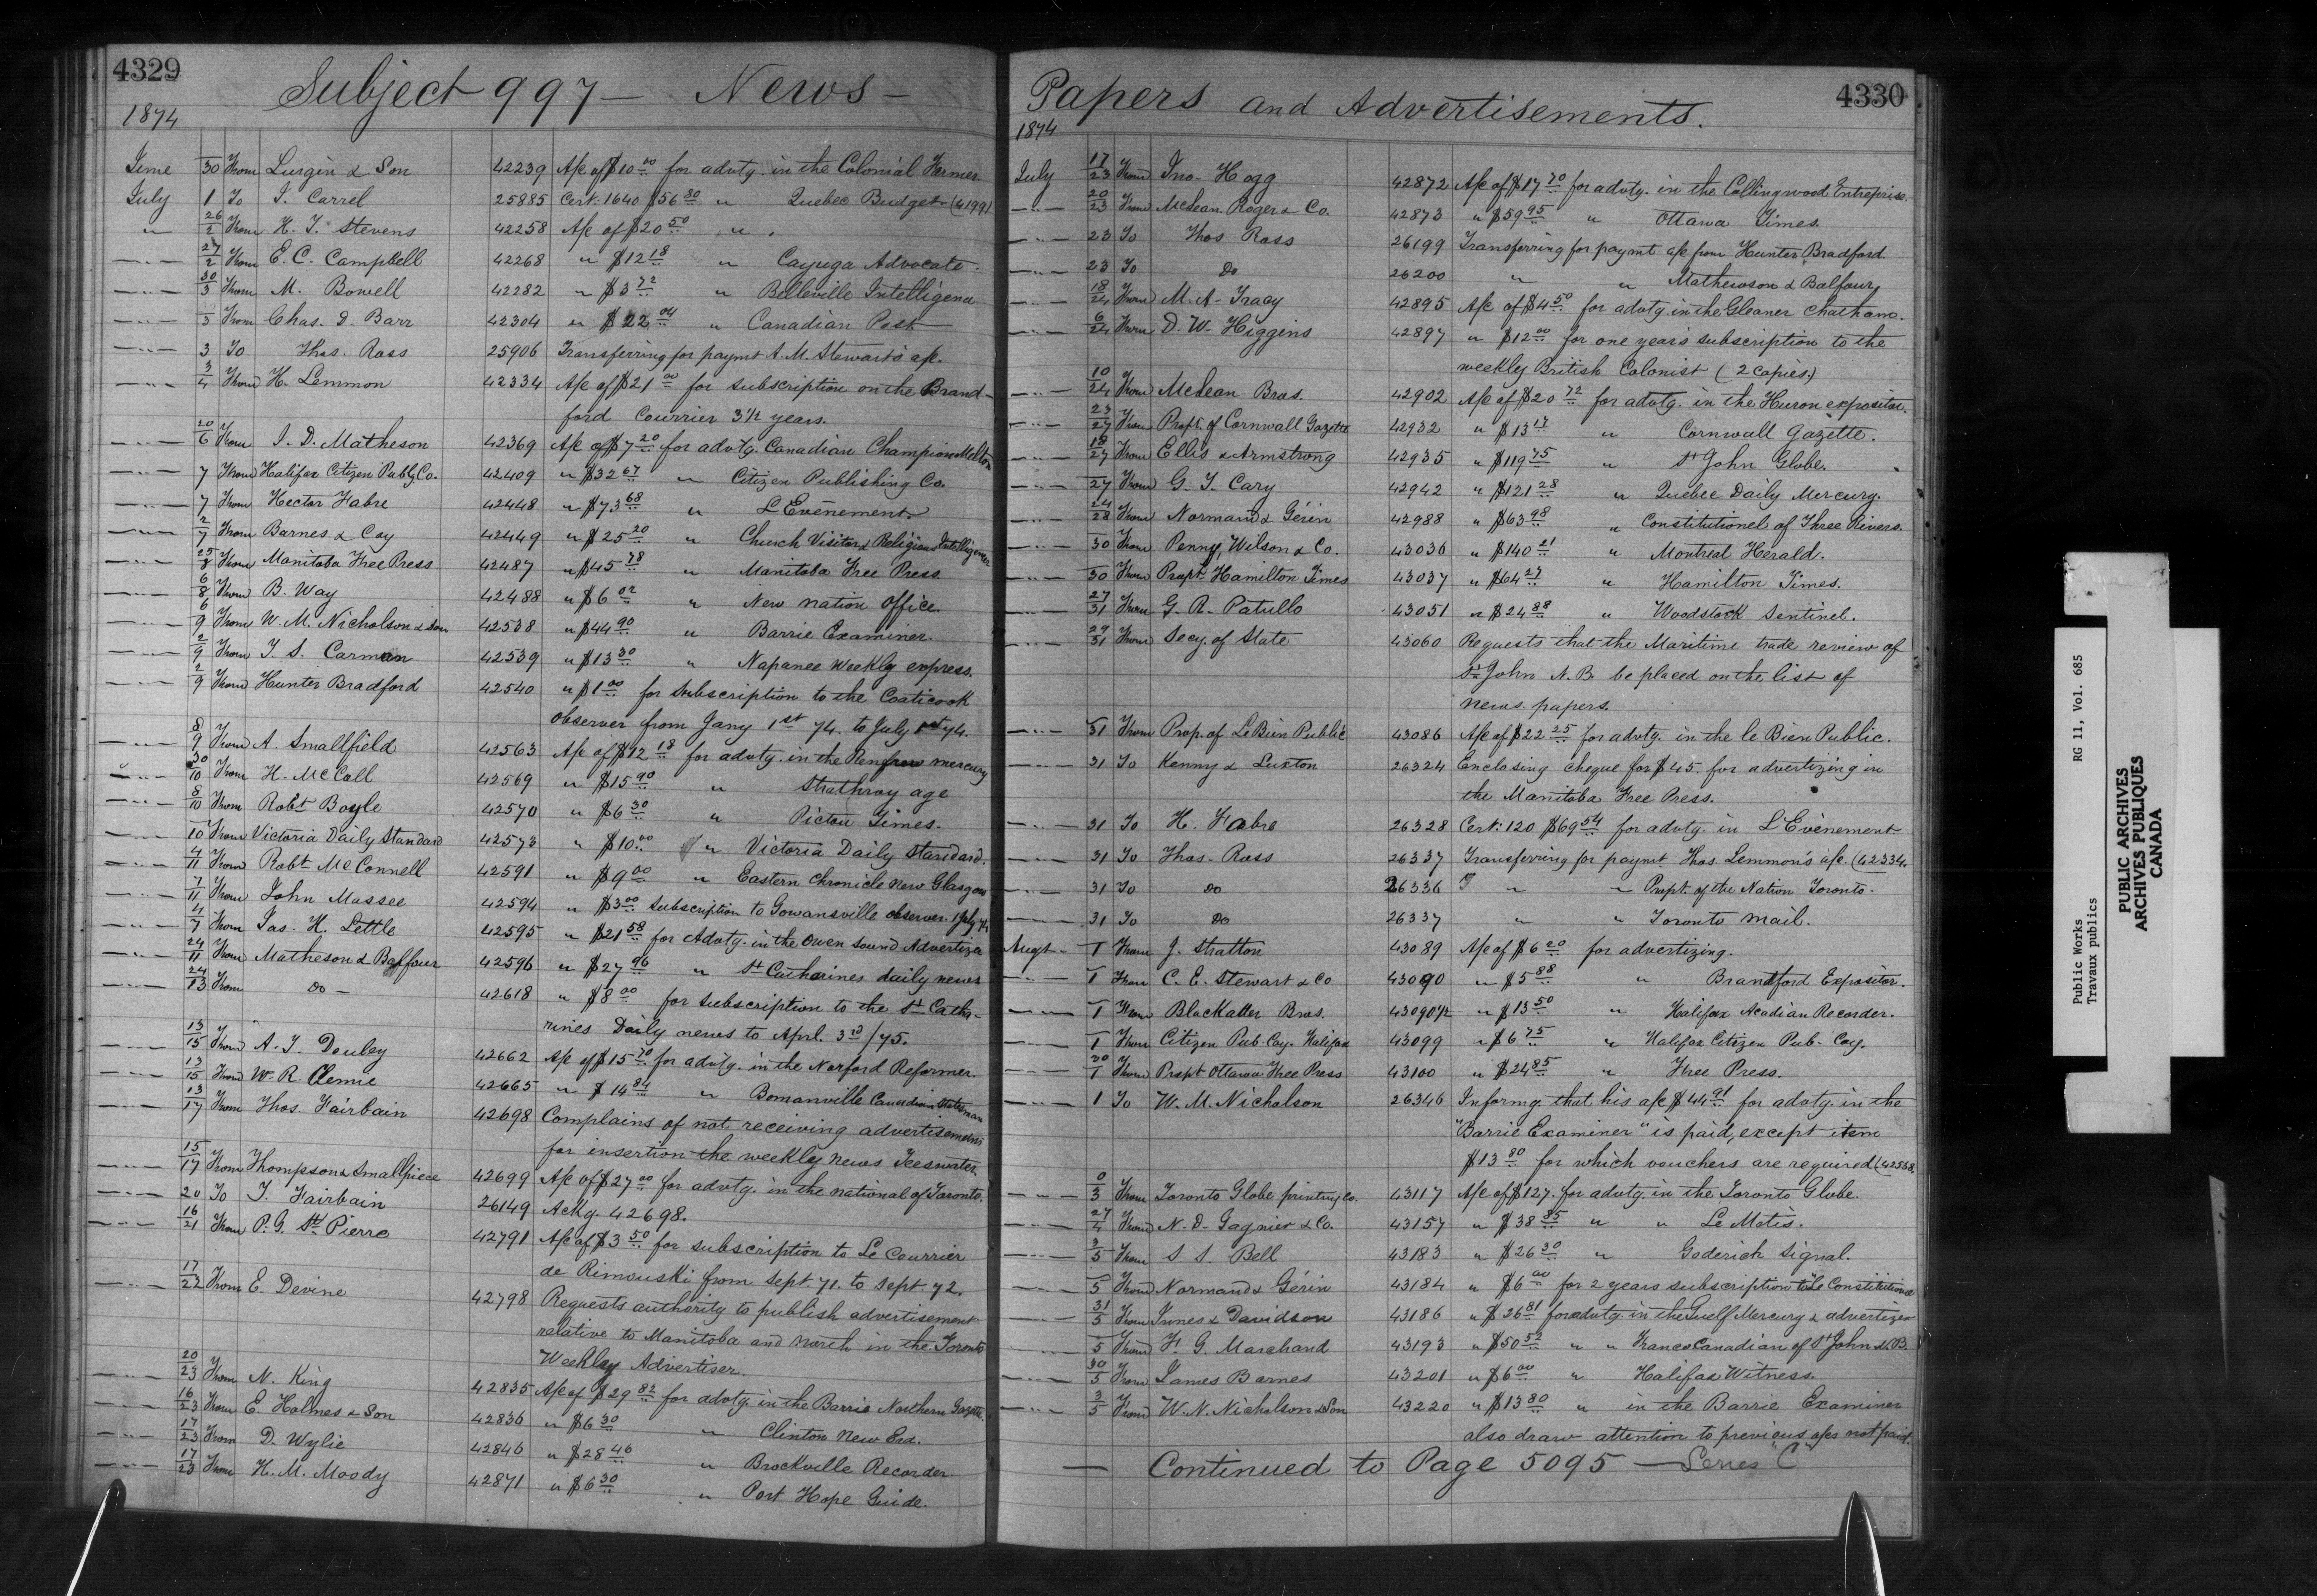 4329
Subject 997 — News —
1874
June 30 From Lurgin & Son 42239 A/c of $10.00 for advtg. in the Colonial Farmer
July 1 To J. Carrel 25885 Cert. 1640 $56.80 " Quebec Budget (41991
" 26/2 From H. T. Stevens 42258 A/c of $20.50 " "
—"— 27/2 From E. C. Campbell 42268 " $12.18 " Cayuga Advocate.
—"— 30/3 From M. Bowell 42282 " $3.72 " Belleville Intelligence
—"— 3 From Chas. D. Barr 42304 " $22.04 " Canadian Post
—"— 3 To Thos. Ross 25906 Transferring for paymt A. M. Stewart's a/c.
—"— 3/4 From H. Lemmon 42334 A/c of $21.00 for subscription on the Brand-
ford Courrier 3 1/2 years.
—"— 20/6 From J. D. Matheson 42369 A/c of $7.20 for advtg. Canadian Champion Milton
—"— 7 From Halifax Citizen Publg Co. 42409 " $32.67 " Citizen Publishing Co.
—"— 7 From Hector Fabre 42448 " $73.68 " L'Evénement
—"— 2/7 From Barnes & Coy 42449 " $25.20 " Church Visitor & Religious Intelligencer
—"— 25/8 From Manitoba Free Press 42487 " $45.78 " Manitoba Free Press
—"— 6/8 From B. Way 42488 " $6.02 " New nation office.
—"— 6/9 From W. M. Nicholson & son 42538 " $44.90 " Barrie Examiner.
—"— 2/9 From T. S. Carman 42539 " $13.30 " Napanee Weekly express.
—"— 2/9 From Hunter Bradford 42540 " $1.00 for subscription to the Coaticook
observer from Jany 1st 74. to July 1st 74.
—"— 8/9 From A. Smallfield 42563 A/c of $12.18 for advtg. in the Renfrew mercury
—"— 30/10 From H. McColl 42569 " $15.90 " Strathroy age
—"— 8/10 From Robt Boyle 42570 " $6.30 " Picton Times.
—"— 10 From Victoria Daily Standard 42573 " $10.00 " Victoria Daily Standard.
—"— 4/11 From Robt McConnell 42591 " $9.00 " Eastern Chronicle New Glasgow
—"— 7/11 From John Massee 42594 " $3.00 subscription to Gowansville observer. 1 July 74
—"— 4/7 From Jas. H. Lettle 42595 " $21.58 for Advtg. in the Owen Sound Advertizer
—"— 24/11 From Matheson & Balfour 42596 " $27.96 " St Catharines daily news
—"— 24/13 From do — 42618 " $8.00 for subscription to the St Catha-
rines Daily news to Aprl. 3rd/75.
—"— 13/15 From A. J. Donley 42662 A/c of $15.70 for advtg. in the Norford Reformer.
—"— 13/15 From W. R. Clemie 42665 " $14.84 " Bomanville Canadian Statesman
—"— 13/17 From Thos. Fairbain 42698 Complains of not receiving advertisements
for insertion the weekly news Teeswater.
—"— 15/17 From Thompson & Smallpiece 42699 A/c of $27.00 for advtg. in the national of Toronto.
—"— 20 To T. Fairbain 26149 Ackg. 42698.
—"— 16/21 From P. G. St Pierre 42791 A/c of $3.50 for subscription to Le Courrier
de Rimouski from Sept. 71. to Sept. 72.
—"— 17/22 From E. Devine 42798 Requests authority to publish advertisement
relative to Manitoba and march in the Toronto
Weekley Advertiser.
—"— 20/23 From N. King 42835 A/c of $29.82 for advtg. in the Barrie Northern Gazette
—"— 16/23 From E. Holmes & Son 42836 " $6.30 " Clinton New Era.
—"— 17/23 From D. Wylie 42846 " $28.46 " Brockville Recorder.
—"— 17/23 From H. M. Moody 42871 " $6.30 " Port Hope Guide.
4330
Papers and Advertisements.
1874
July 17/23 From Jno. Hogg 42872 A/c of $17.70 for advtg. in the Collingwood Entreprise.
—"— 20/23 From McLean Roger & Co. 42873 " $59.95 " Ottawa Times.
—"— 23 To Thos Ross 26199 Transferring for paymt a/c from Hunter Bradford.
—"— 23 To Do 26200 " " Mathewson & Balfour
—"— 18/24 From M. A. Tracy 42895 A/c of $4.50 for advtg. in the Gleaner Chatham.
—"— 6/24 From D. W. Higgins 42897 " $12.00 for one year's subscription to the
weekly British Colonist (2 copies.)
—"— 10/24 From McLean Bros. 42902 A/c of $20.72 for advtg. in the Huron expositor.
—"— 23/27 From Propt. of Cornwall Gazette 42932 " $13.17 " Cornwall Gazette.
—"— 18/27 From Ellis & Armstrong 42935 " $119.75 " St John Globe.
—"— 27 From G. T. Cary 42942 " $121.28 " Quebec Daily Mercury.
—"— 24/28 From Normand & Gérin 42988 " $63.98 " Constitutionel of Three Rivers.
—"— 30 From Penny, Wilson & Co. 43036 " $140.21 " Montreal Herald.
—"— 30 From Propt. Hamilton Times 43037 " $64.27 " Hamilton Times.
—"— 27/31 From G. R. Patullo 43051 " $24.88 " Woodstock Sentinel.
—"— 29/31 From Secy. of State 43060 Requests that the Maritime trade review of
St John N. B. be placed on the list of
news papers.
—"— 31 From Prop. of Le Bien Public 43086 A/c of $22.25 for advtg. in the le Bien Public.
—"— 31 To Kenny & Luxton 26324 Enclosing cheque for $45. for advertizing in
the Manitoba Free Press.
—"— 31 To H. Fabre 26328 Cert. 120 $69.54 for advtg. in L'Evènement
—"— 31 To Thos. Ross 26337 Transferring for paymt Thos. Lemmon's a/c. (42334.
—"— 31 To do 26336 " " Propt. of the Nation Toronto.
—"— 31 To Do 26337 " " Toronto mail.
Augt — 1 From J. Stratton 43089 A/c of $6.20 for advertizing.
—"— 1 From C. E. Stewart & Co 43090 " $5.88 " Brandford Expositor.
—"— 1 From Blackatter Bros. 43090 1/2 " $13.50 " Halifax Acadian Recorder.
—"— 1 From Citizen Pub. Coy. Halifax 43099 " $6.75 " Halifax Citizen Pub. Coy.
—"— 30/1 From Propt Ottawa Free Press 43100 " $24.85 " Free Press.
—"— 1 To W. M. Nicholson 26346 Informg. that his a/c $44.91 for advtg. in the
"Barrie Examiner" is paid, except item
$13.80 for which vouchers are required (42538
—"— 3 From Toronto Globe printing Co. 43117 A/c of $127. for advtg. in the Toronto Globe.
—"— 27/4 From N. D. Gagnier & Co. 43157 " $38.85 " " Le Métis.
—"— 3/5 From S S. Bell 43183 " $26.30 " Goderich Signal.
—"— 5 From Normand & Gérin 43184 " $6.00 for 2 years subscription to Le Constitutionel
—"— 31/5 From Innes & Davidson 43186 " $26.81 for advtg. in the Guelf Mercury & advertizer
5 From F. G. Marchand 43193 " $50.52 " " Franco Canadian of St John N.B.
—"— 30/5 From James Barnes 43201 " $6.00 " Halifax Witness.
—"— 3/5 From W. N. Nicholson & Son 43220 " $13.80 " in the Barrie Examiner
also draw attention to previous a/cs not paid.
— Continued to Page 5095 — Series "C"
Public Works RG 11, Vol. 685
Travaux publics
PUBLIC ARCHIVES
ARCHIVES PUBLIQUES
CANADA